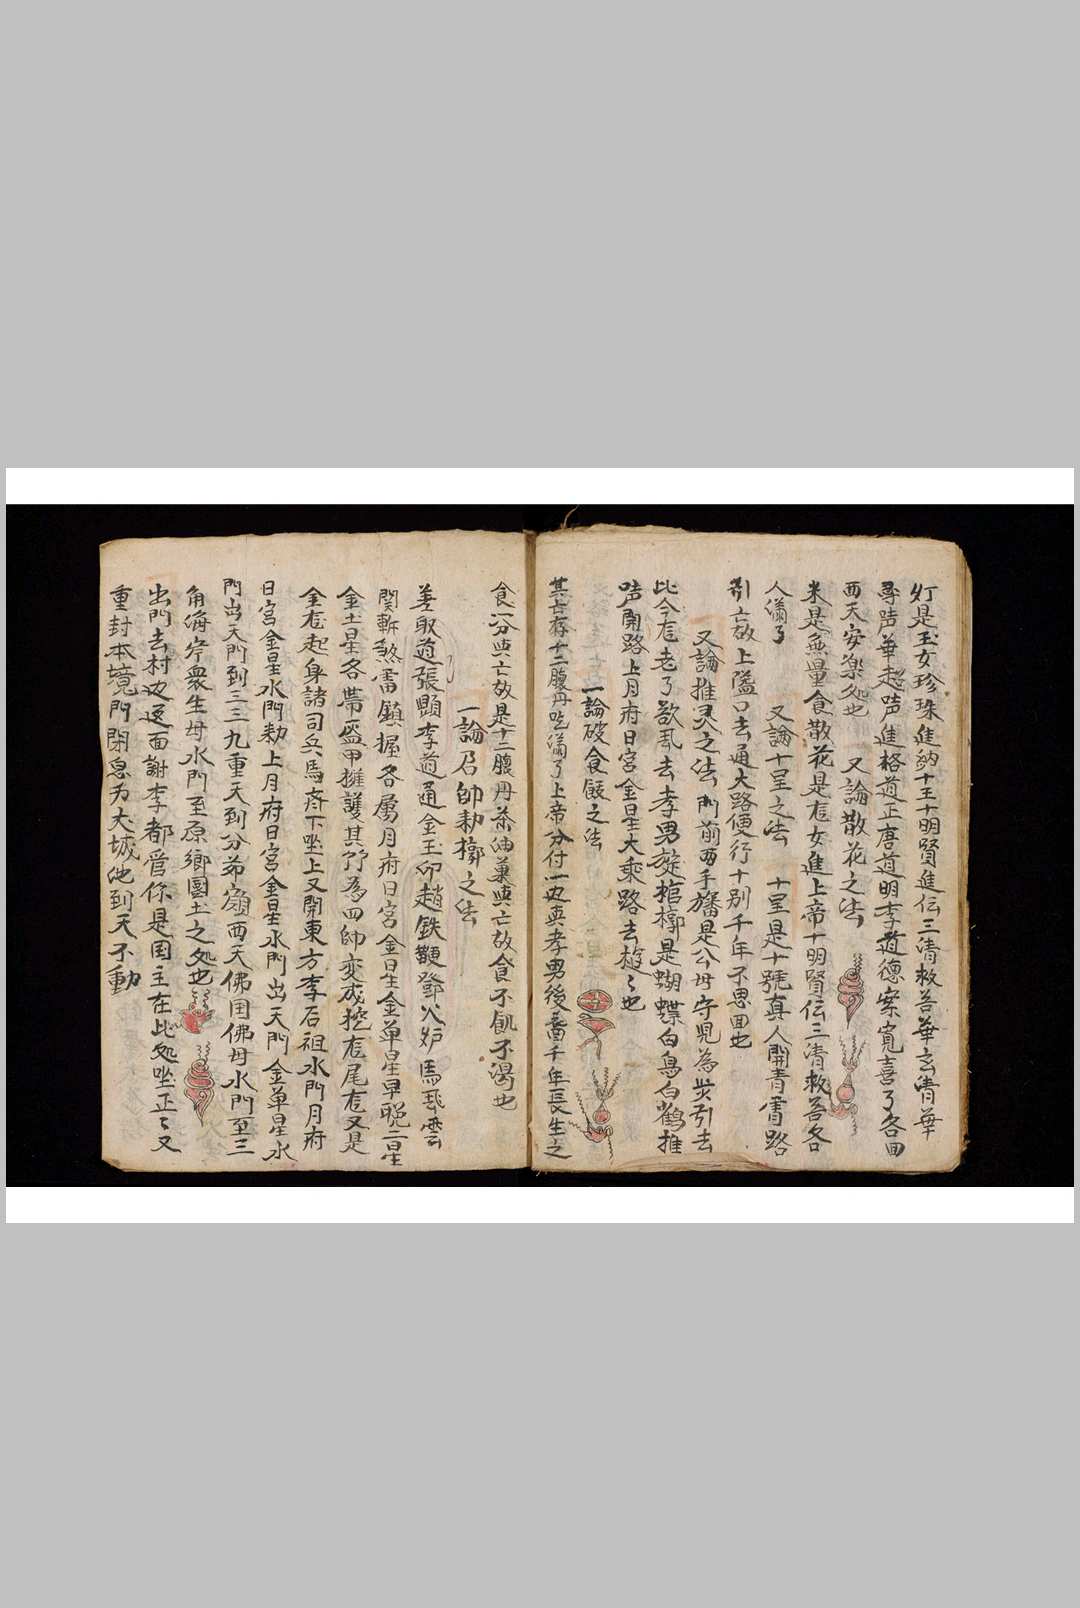 灯是玉女珍珠進納十王十明賢進伝三清救苦華玄清華
尋声華趍声進格道正唐道明李道德案寛喜了各囬
西天安楽処也　又論散花之法
米是無量食散花是㐌女進上帝十明賢伝三清救苦各
人满了　又論十呈之法　十呈是十號真人開青雲路
引亡故上隘口去通大路便行十别千年不思囬也
又論推灵之法　門前两手旛是公母守児為𡵆引去
比今㐌老了欲𠀍去孝男旋棺槨是蝴蝶白鳥白鶴推
声開路上月府日宮金星大乘路去也
一論破食飯之法
其亡存十二膓丹吃满了上帝分付一边典孝男後番千年長生之
食一分典亡故是十二膓丹茶油菓典亡故食不飢不渴也
一論召帥勅槨之法
差取道張顕李道通金玉印趙鉄鞭鄧火炉馬
関斬煞雷鎮握各属月府日宮金星金单星早晚二星
金土星各帯盔甲擁護其爷為四帥変成挖㐌尾㐌又是
金㐌起身諸司兵馬斉下坐上又開東方李石祖水門月府
日宮金星水門勅上月府日宮金星水門出天門金单星水
門出天門到三三九重天到分茆嶺西天佛囯佛母水門至三
角海岸衆生母水門至原鄉國土之処也
出門去村边逻面謝李都官你是囯主在此処坐正〻又
重封本境門閉息为大城池到天不動